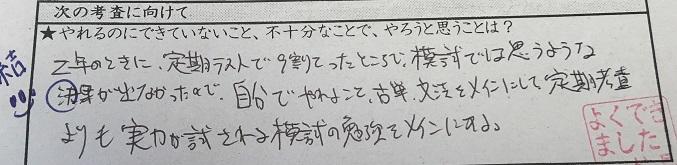 次の考査に向けて
★やれるのにできていないこと、不十分なことで、やろうと思うことは?
2年のときに、定期テストで9割とったところで、模試では思うような
結果が出なかったので、自分でやれよことで、古単、文法をメインにして定期考査
よりも実力が試される模試の勉強をメインにする。
よくでき
ました